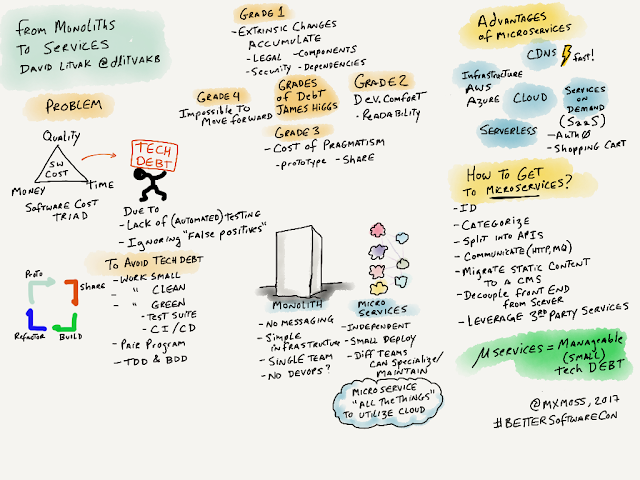 from Monoliths
to Services
David Litvak @dlitvakb
PROBLEM
Quality
SW
COST
Money
Time
Software Cost
Triad
TECH
DEBT
Due to
- Lack of (automated) testing
- Ignoring "False positives"
To Avoid Tech debt
- Work Small
- " Clean
- " Green
- Test Suite
- CI/CD
- Pair Program
- TDD & BDD
Proto
Share
Build
Refactor
Grade 1
- Extrinsic Changes
Accumulate
- Legal - Components
- Security - Dependencies
Grade 4
Impossible to
Move forward
Grades
of Debt
James Higgs
Grade 2
Dev. Comfort
- Readability
Grade 3
- Cost of Pragmatism
- Prototype - Share
Monolith
- No Messaging
- Simple
infrastructure
- Single team
- No DevOps?
Micro
Services
- Independent
- Small Deploy
- Diff Teams
can Specialize/
Maintain
Microservice
"All the things"
to utilize cloud
Advantages
of Microservices
CDNs
fast!
Infrastructure
AWS
Azure
Cloud
Serverless
Services
on
Demand
(SaaS)
- Auth0
- Shopping Cart
How to Get
to Microservices?
- ID
- Categorize
- Split into APIs
- Communicate (HTTP, MQ)
- Migrate Static Content
to a CMS
- Decouple front end
from Server
- Leverage 3rd Party Services
μservices = Manageable
(small)
tech DEBT
@mxmoss, 2017
#BetterSoftwareCon